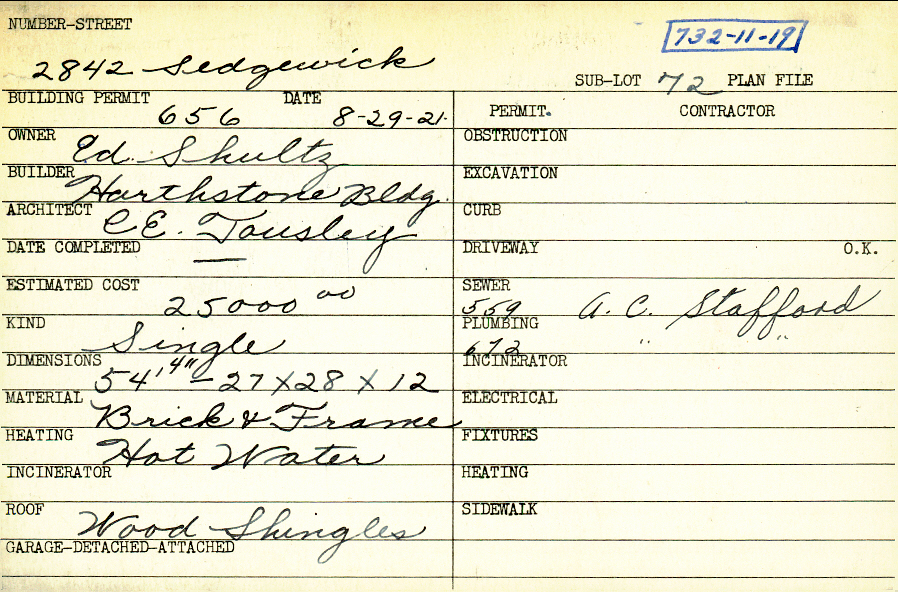 NUMBER-STREET
732-11-19
2842 Sedgewick
SUB-LOT 72 PLAN FILE
BUILDING PERMIT DATE
656 8-29-21.
PERMIT. CONTRACTOR
OWNER Ed. Shultz
OBSTRUCTION
BUILDER Harthstone Bldg.
EXCAVATION
ARCHITECT C.E. Tousley
CURB
DATE COMPLETED —
DRIVEWAY O.K.
ESTIMATED COST
25000 00
SEWER
559 A. C. Stafford
KIND
Single
PLUMBING
672 " "
DIMENSIONS
54'4" - 27 X 28 X 12
INCINERATOR
MATERIAL
Brick & Frame
ELECTRICAL
HEATING
Hot Water
FIXTURES
INCINERATOR
HEATING
ROOF Wood Shingles
SIDEWALK
GARAGE-DETACHED-ATTACHED